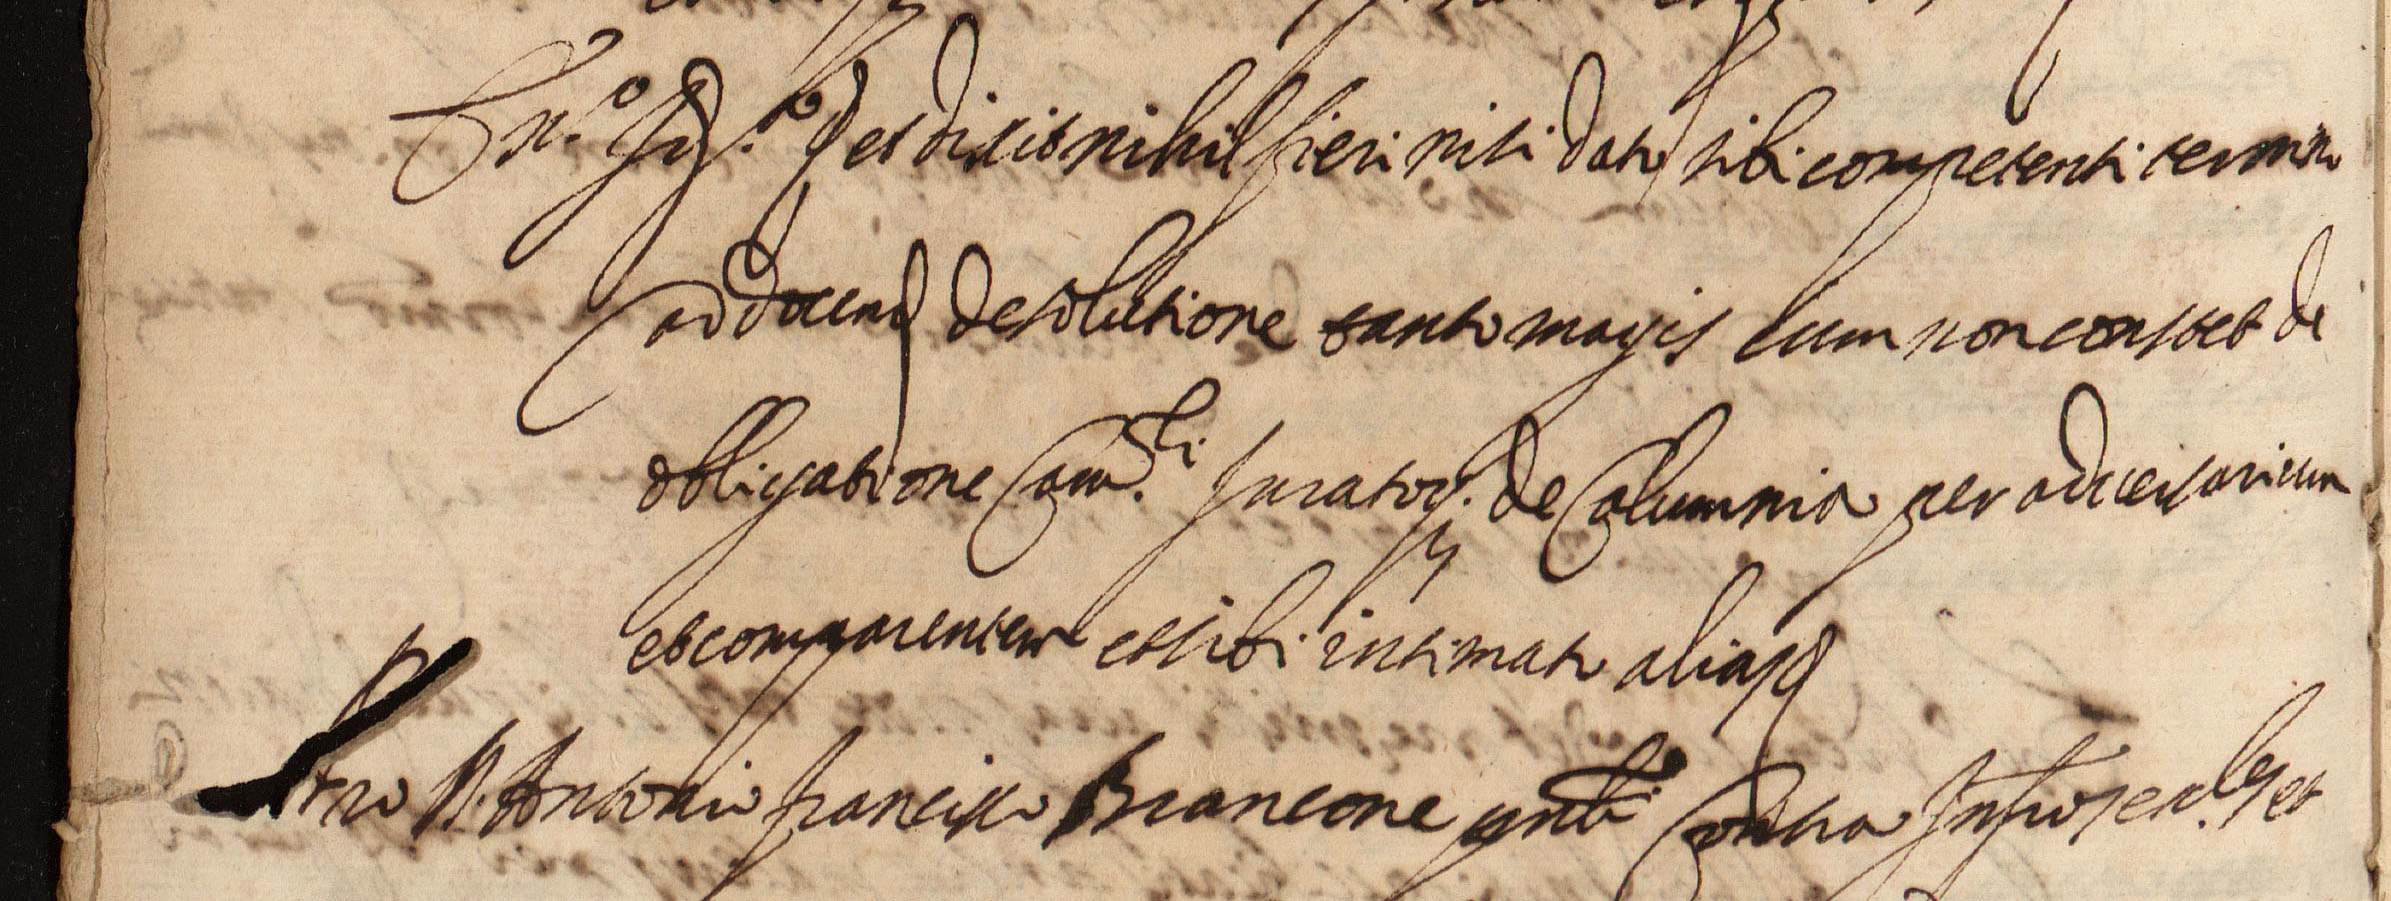 et dixit nihil fieri nisi dato sibi competenti termino
ad docend de solutione tanto magis cum non constet de
obligatione Cam.li jurator. de Calumnia per adversarium
et comparentem et sibi intimato alias
Pro D. Antonio Francisco Brancone contra Infrascr. et